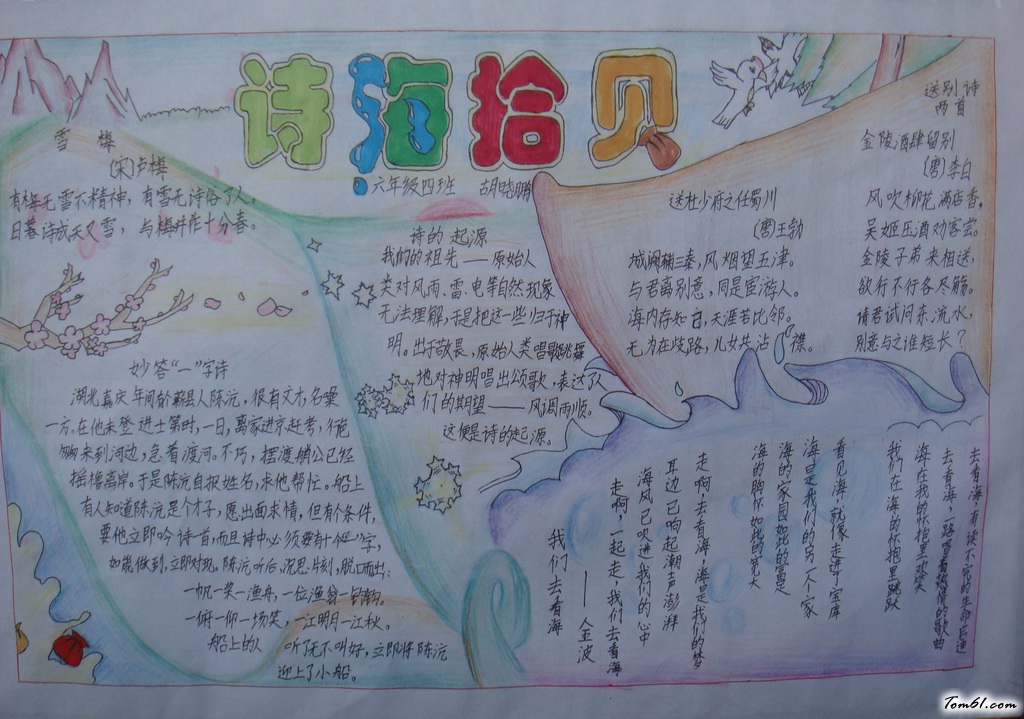 诗海拾贝
六年级四班 胡晓鹏
雪 梅
(宋)卢梅
有梅无雪不精神，有雪无诗俗了人。
日暮诗成天又雪，与梅并作十分春。
诗的起源
我们的祖先——原始人
类对风雨、雷、电等自然现象
无法理解，于是把这一些归于神
明。出于敬畏，原始人类唱歌跳舞
地对神明唱出颂歌，表达了人
们的期望——风调雨顺。
这便是诗的起源。
妙答“一”字诗
湖北嘉庆年间蕲州人陈沆，很有文才，名噪
一方。在他未登进士第时，一日，离家进京赶考，
来到河边，急着渡河。不巧，摆渡艄公已经
摇橹离岸。于是陈沆自报姓名，求他帮忙。船上
有人知道陈沆是个才子，愿出面求情，但有个条件，
要他立即吟诗一首，而且诗中必须要有十个“一”字，
如能做到，立即对现。陈沆听后，沉思片刻，脱口而出：
一帆一桨一渔舟，一位渔翁一钓钩。
一俯一仰一场笑，一江明月一江秋。
船上的人 听了无不叫好，立即将陈沆
迎上了小船。
送杜少府之任蜀川
(唐)王勃
城阙辅三秦，风烟望五津。
与君离别意，同是宦游人。
海内存知己，天涯若比邻。
无为在歧路，儿女共沾 襟。
送别诗
两首
金陵酒肆留别
(唐)李白
风吹柳花满店香，
吴姬压酒劝客尝。
金陵子弟来相送，
欲行不行各尽觞。
请君试问东流水，
别意与之谁短长？
去看海，
去看海，一路
海在我的怀抱里欢笑
我们在海的怀抱里跳跃
看见海，就像走进了宝库
海日是我们的另一个家
海的家园如此的富足
海的胸怀如此的宽大
走啊，去看海，海是我们的梦
耳边已响起潮声澎湃
海风已吹进我们的心中
走啊，一起走，我们去看海
——金波
我们去看海
Tom61.com